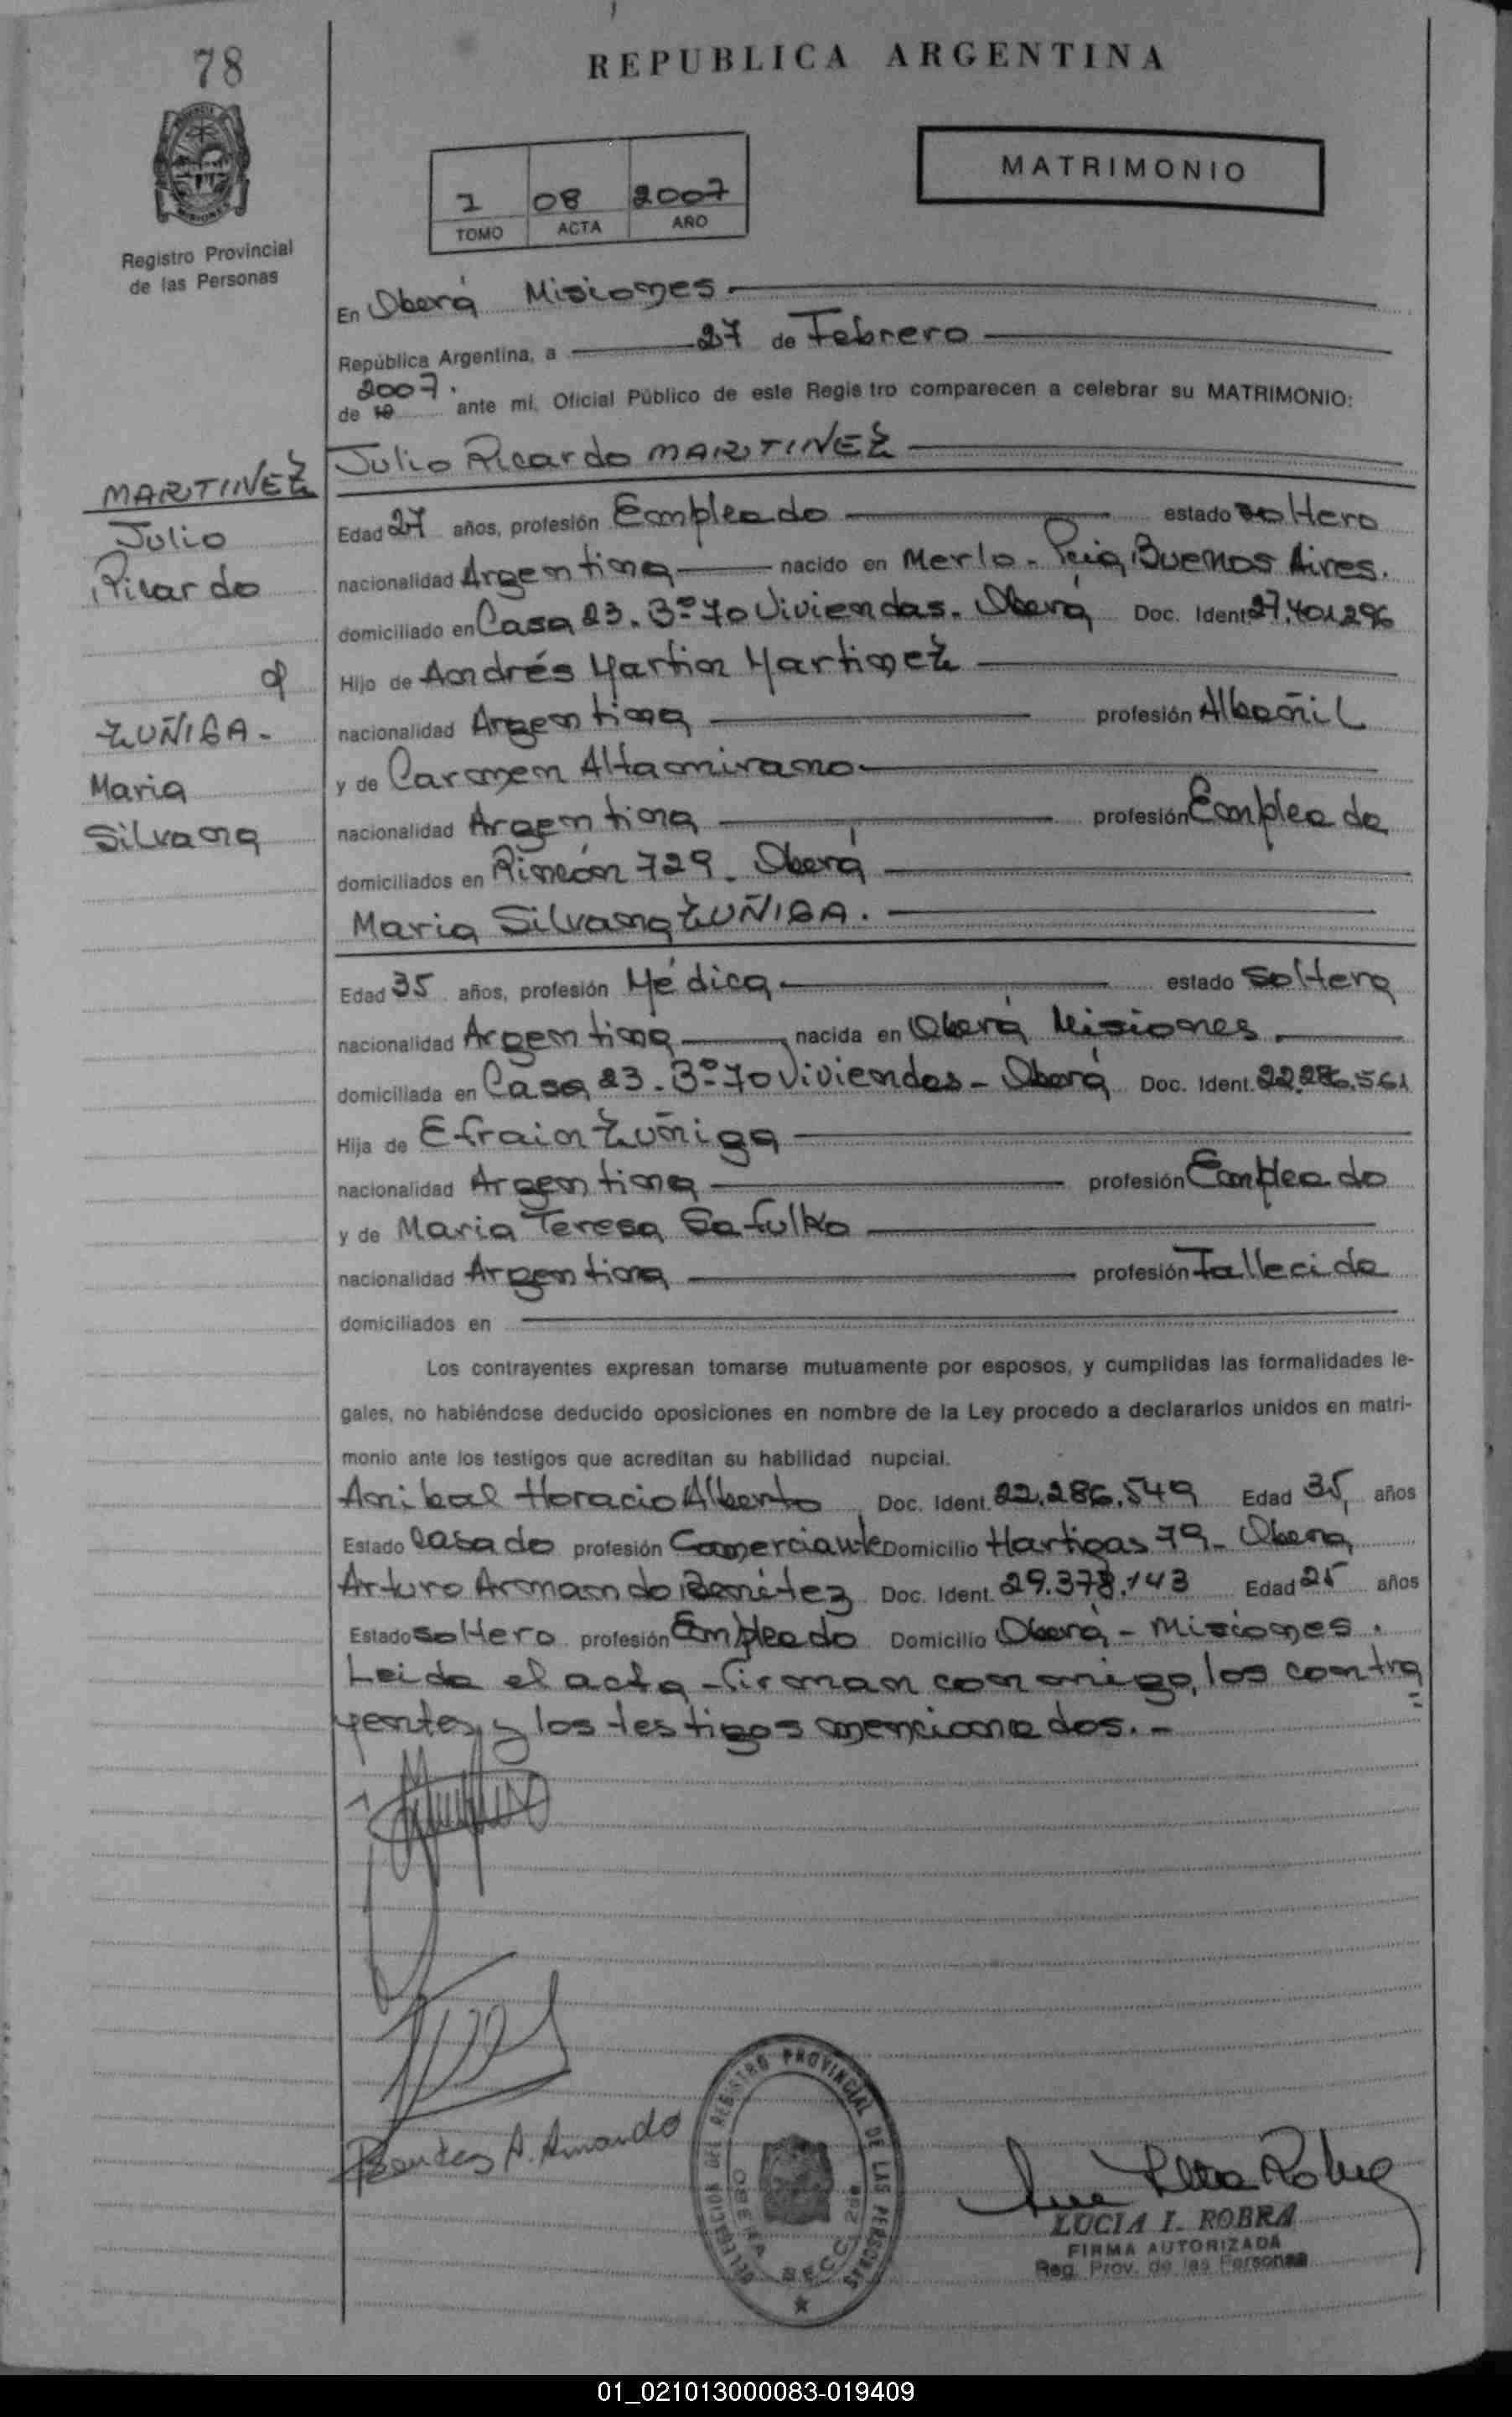 78
REPUBLICA ARGENTINA
MATRIMONIO
1 08 2007
TOMO ACTA AÑO
Registro Provincial
de las Personas
En Oberá Misiones.
República Argentina, a 27 de Febrero
2007.
de 19 ante mi, Oficial Público de este Registro comparecen a celebrar su MATRIMONIO:
Julio Ricardo MARTINEZ
MARTINEZ
Julio
Ricardo
Edad 27 años, profesión Empleado estado soltero
nacionalidad Argentina nacido en Merlo - Pcia, Buenos Aires.
domiciliado en Casa 23. Bº 70 Viviendas. Oberá Doc. Ident 27.401.296
Hijo de Andrés Martin Martinez
nacionalidad Argentina profesión Albañil
y de Carmen Altamirano
nacionalidad Argentina profesión Empleada
domiciliados en Rincón 729. Oberá
ZUÑIGA-
Maria
Silvana
Maria Silvana ZUÑIGA.
Edad 35 años, profesión Médica estado soltera
nacionalidad Argentina nacida en Oberá Misiones
domiciliada en Casa 23. Bº 70 Viviendas - Oberá Doc. Ident. 22.286.561
Hija de Efrain Zuñiga
nacionalidad Argentina profesión Empleado
y de Maria Teresa Safulko
nacionalidad Argentina profesión Fallecida
domiciliados en
Los contrayentes expresan tomarse mutuamente por esposos, y cumplidas las formalidades le-
gales, no habiéndose deducido oposiciones en nombre de la Ley procedo a declararlos unidos en matri-
monio ante los testigos que acreditan su habilidad nupcial.
Anibal Horacio Alberto Doc. Ident. 22.286.549 Edad 35, años
Estado Casado profesión Comerciante Domicilio Hartigas 79- Oberá
Arturo Armando Benítez Doc. Ident. 29.378.143 Edad 25 años
Estado soltero profesión Empleado Domicilio Oberá - Misiones.
Leida el acta - firman conmigo, los contra=
yentes, y los testigos mencionados.-
Benitez A. Armando
DELEGACION DEL REGISTRO PROVINCIAL DE LAS PERSONAS
OBERA
SECC.
LUCIA I. ROBRA
FIRMA AUTORIZADA
Reg. Prov. de las Personas
01_021013000083-019409